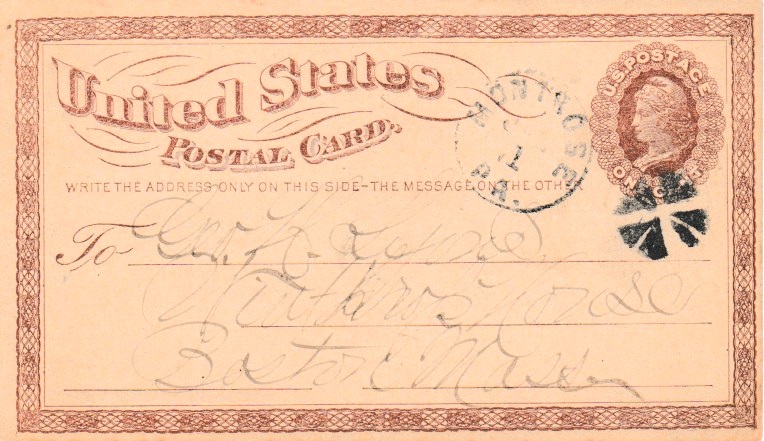 United States
POSTAL CARD.
U.S. POSTAGE
ONE CENT
MONTROSE
1
PA.
WRITE THE ADDRESS ONLY ON THIS SIDE-THE MESSAGE ON THE OTHER
To Geo. H.
Winthrop House
Boston Mass